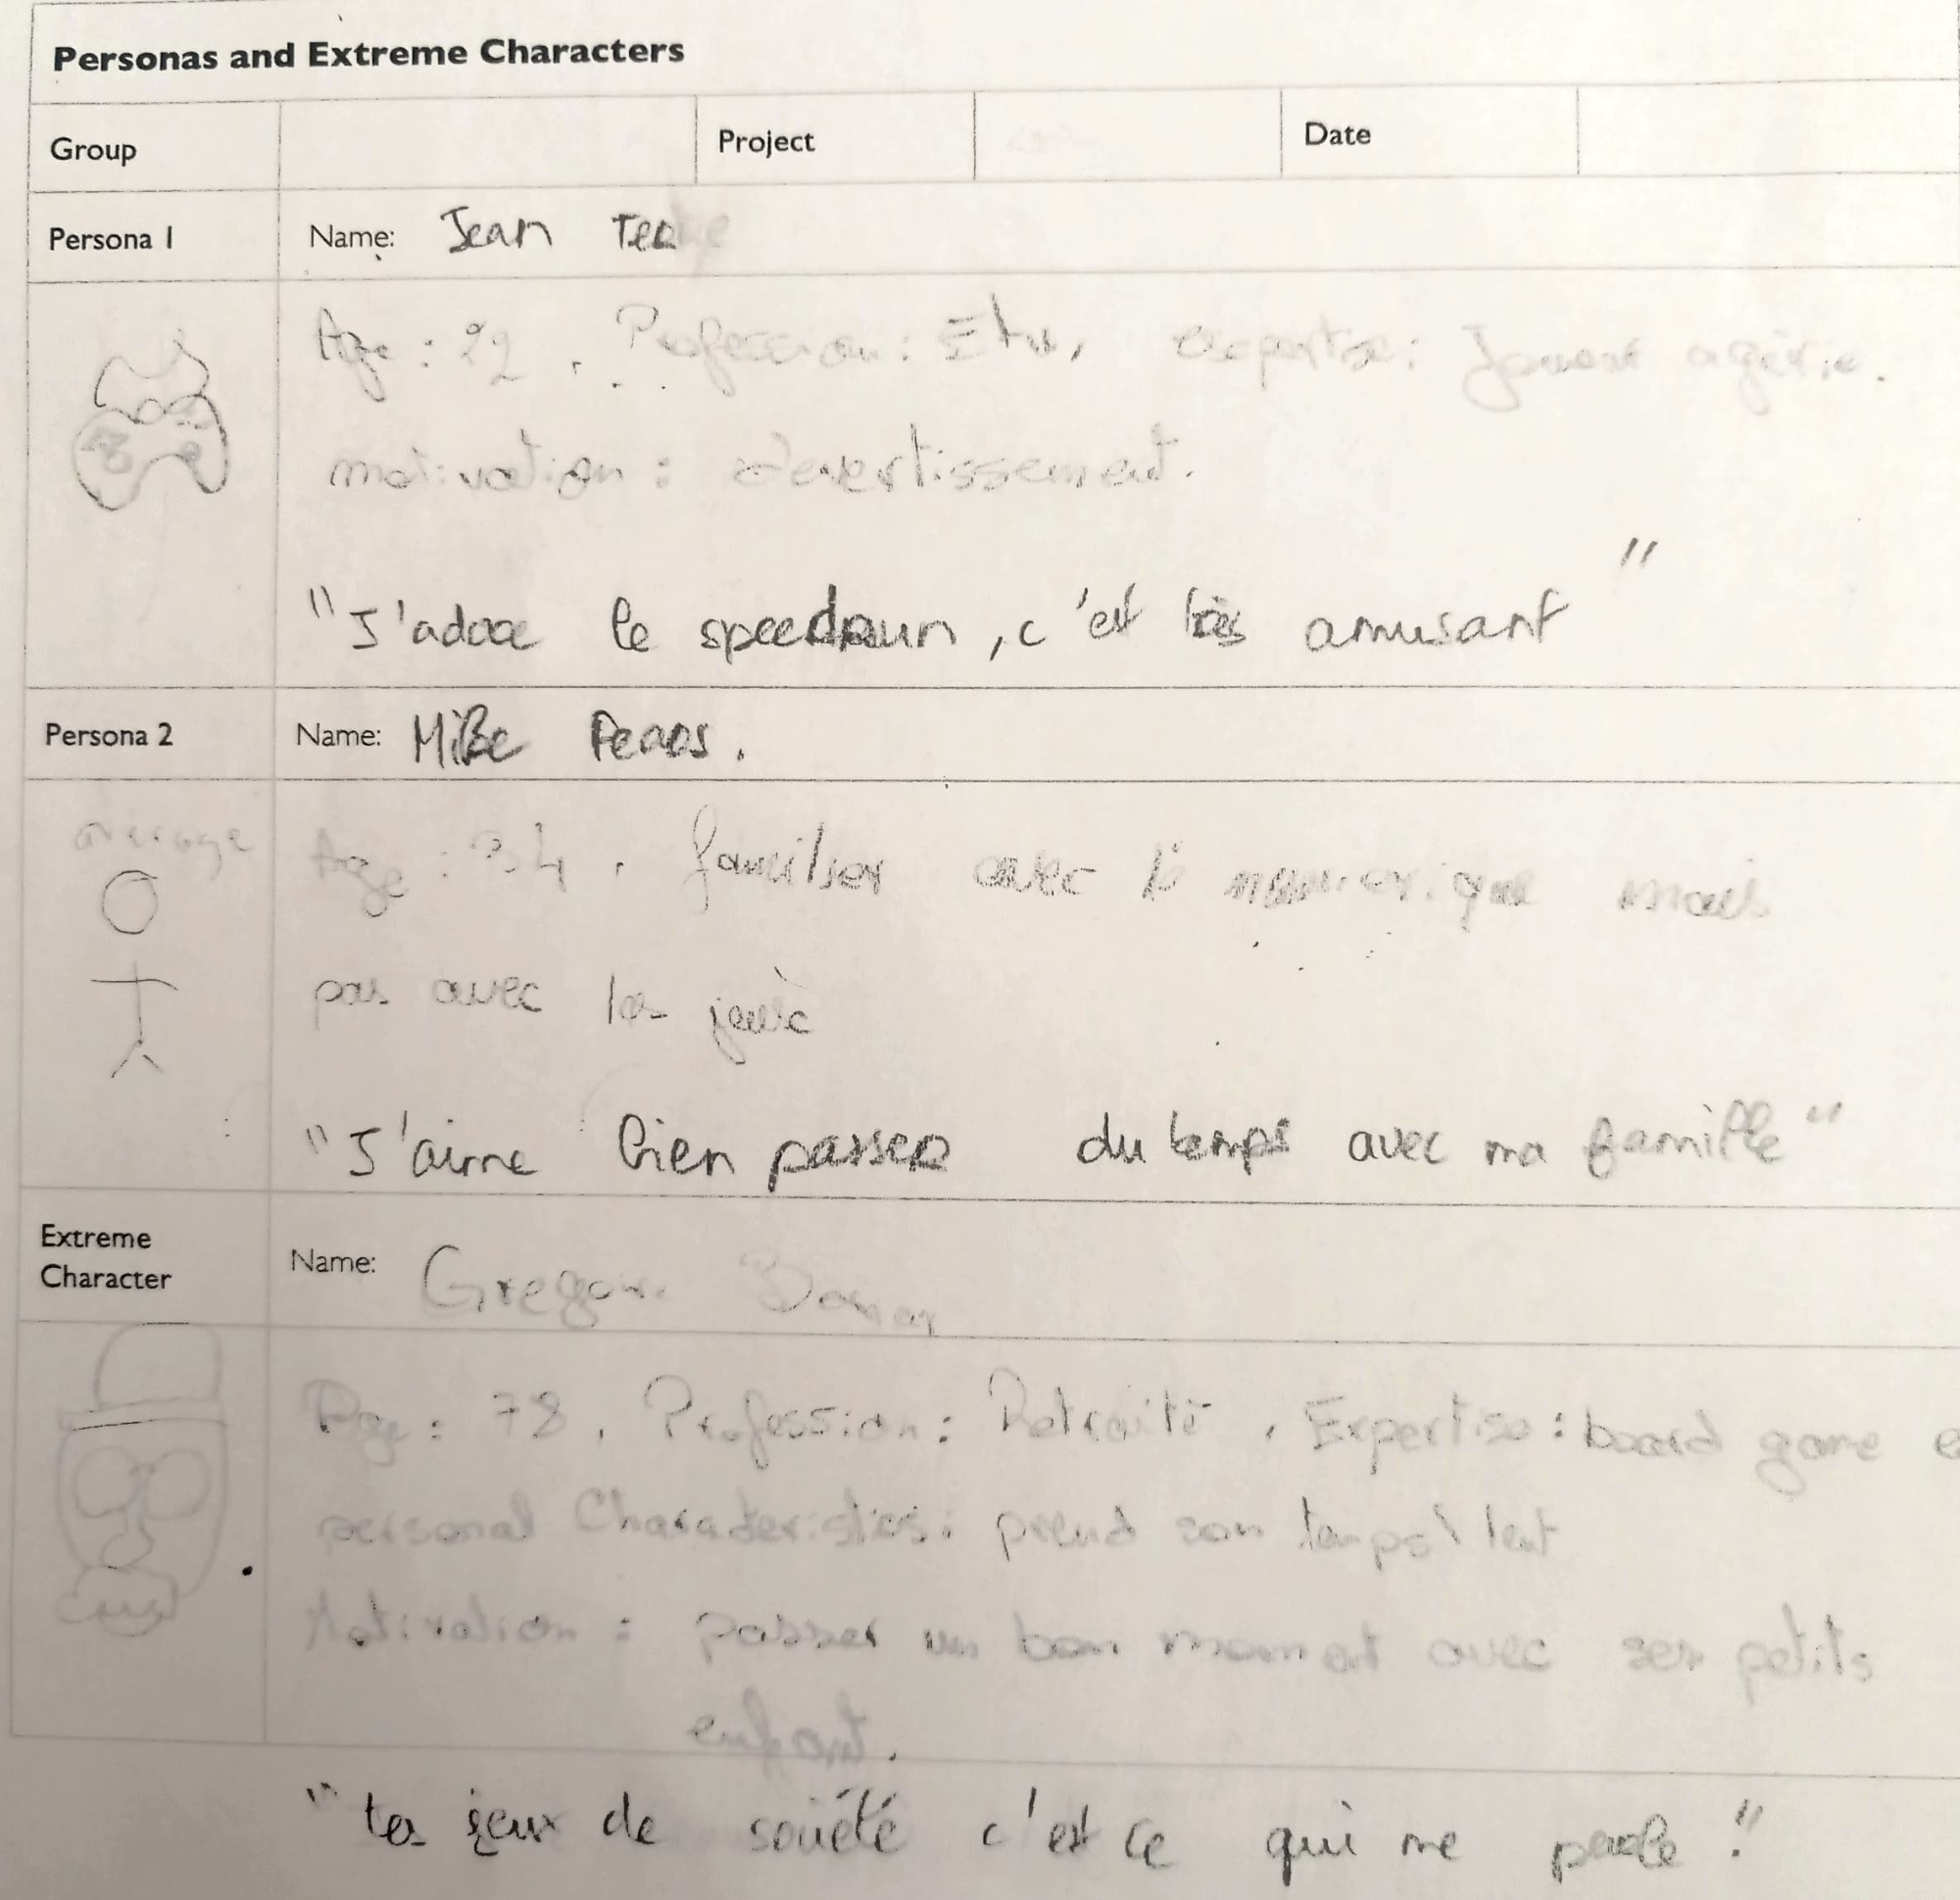 Personas and Extreme Characters
Group Project Date
Persona 1 Name: Jean
Age : 22 . Profession : Etu, expertise : Joueur
motivation : divertissement.
"J'adore le speedrun, c'est très amusant"
Persona 2 Name: Mike
average
Age : 34 . familier avec le numérique mais
pas avec les jeux
"J'aime bien passer du temps avec ma famille"
Extreme
Character
Name: Gregoire
Age : 78 , Profession : Retraité , Expertise : board game
personal Characteristics : prend son temps \ lent
Motivation : passer un bon moment avec ses petits
enfant.
"Les jeux de société c'est ce qui me parle."